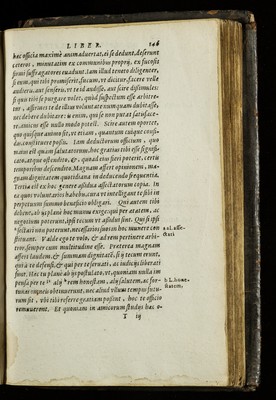 LIBER. 146
hoc officia maximè animaduertat, ei se dedant, deserunt
ceteros, minutatim ex communibus proprij, ex fucosis
firmi suffragatores euadunt. Iam illud teneto diligenter,
si eum, qui tibi promiserit, fucum, ut dicitur, facere uelle
audieris, aut senseris, ut te id audisse, aut scire dissimules:
si quis tibi se purgare uolet, quòd suspectum esse arbitre-
tur, affirmes te de illius uoluntate numquam dubitasse,
nec debere dubitare: is enim, qui se non putat satisface-
re, amicus esse nullo modo potest. Scire autem oportet,
quo quisque animo sit, ut etiam, quantum cuique confi-
das, constituere possis. Iam deductorum officium, quo
maius est quàm salutatorum, hoc gratius tibi esse significa-
cato, atque ostendito, &, quoad eius fieri poterit, certis
temporibus descendito. Magnam affert opinionem, ma-
gnam dignitatem quotidiana in deducendo frequentia.
Tertia est ex hoc genere assidua assectatorum copia. In
ea quos uoluntarios habebis, cura ut intelligant te sibi in
perpetuum summo beneficio obligari. Qui autem tibi
debent, ab ijs plane hoc munus exige: qui per aetatem, ac
negotium poterunt, ipsi tecum ut assidui sint. Qui si ipsi
a sectari non poterunt, necessarios suos in hoc munere con-
stituant. Valde ego te uolo, & ad rem pertinere arbi-
tror, semper cum multitudine esse. Praeterea magnam
affert laudem, & summam dignitatē, si ij tecum erunt,
qui à te defensi, & qui per te seruati, ac iudicijs liberati
sunt. Hoc tu plane ab ijs postulato, ut, quoniam nulla im
pensa per te alij rem honestam, alij salutem, ac for-
tunas omneis obtinuerint, nec aliud ullum tempus futu-
rum sit, ubi tibi referre gratiam possint, hoc te officio
remunerent. Et quoniam in amicorum studijs haec o-
T ij
a al. asse-
ctari
b L. hone-
statem,